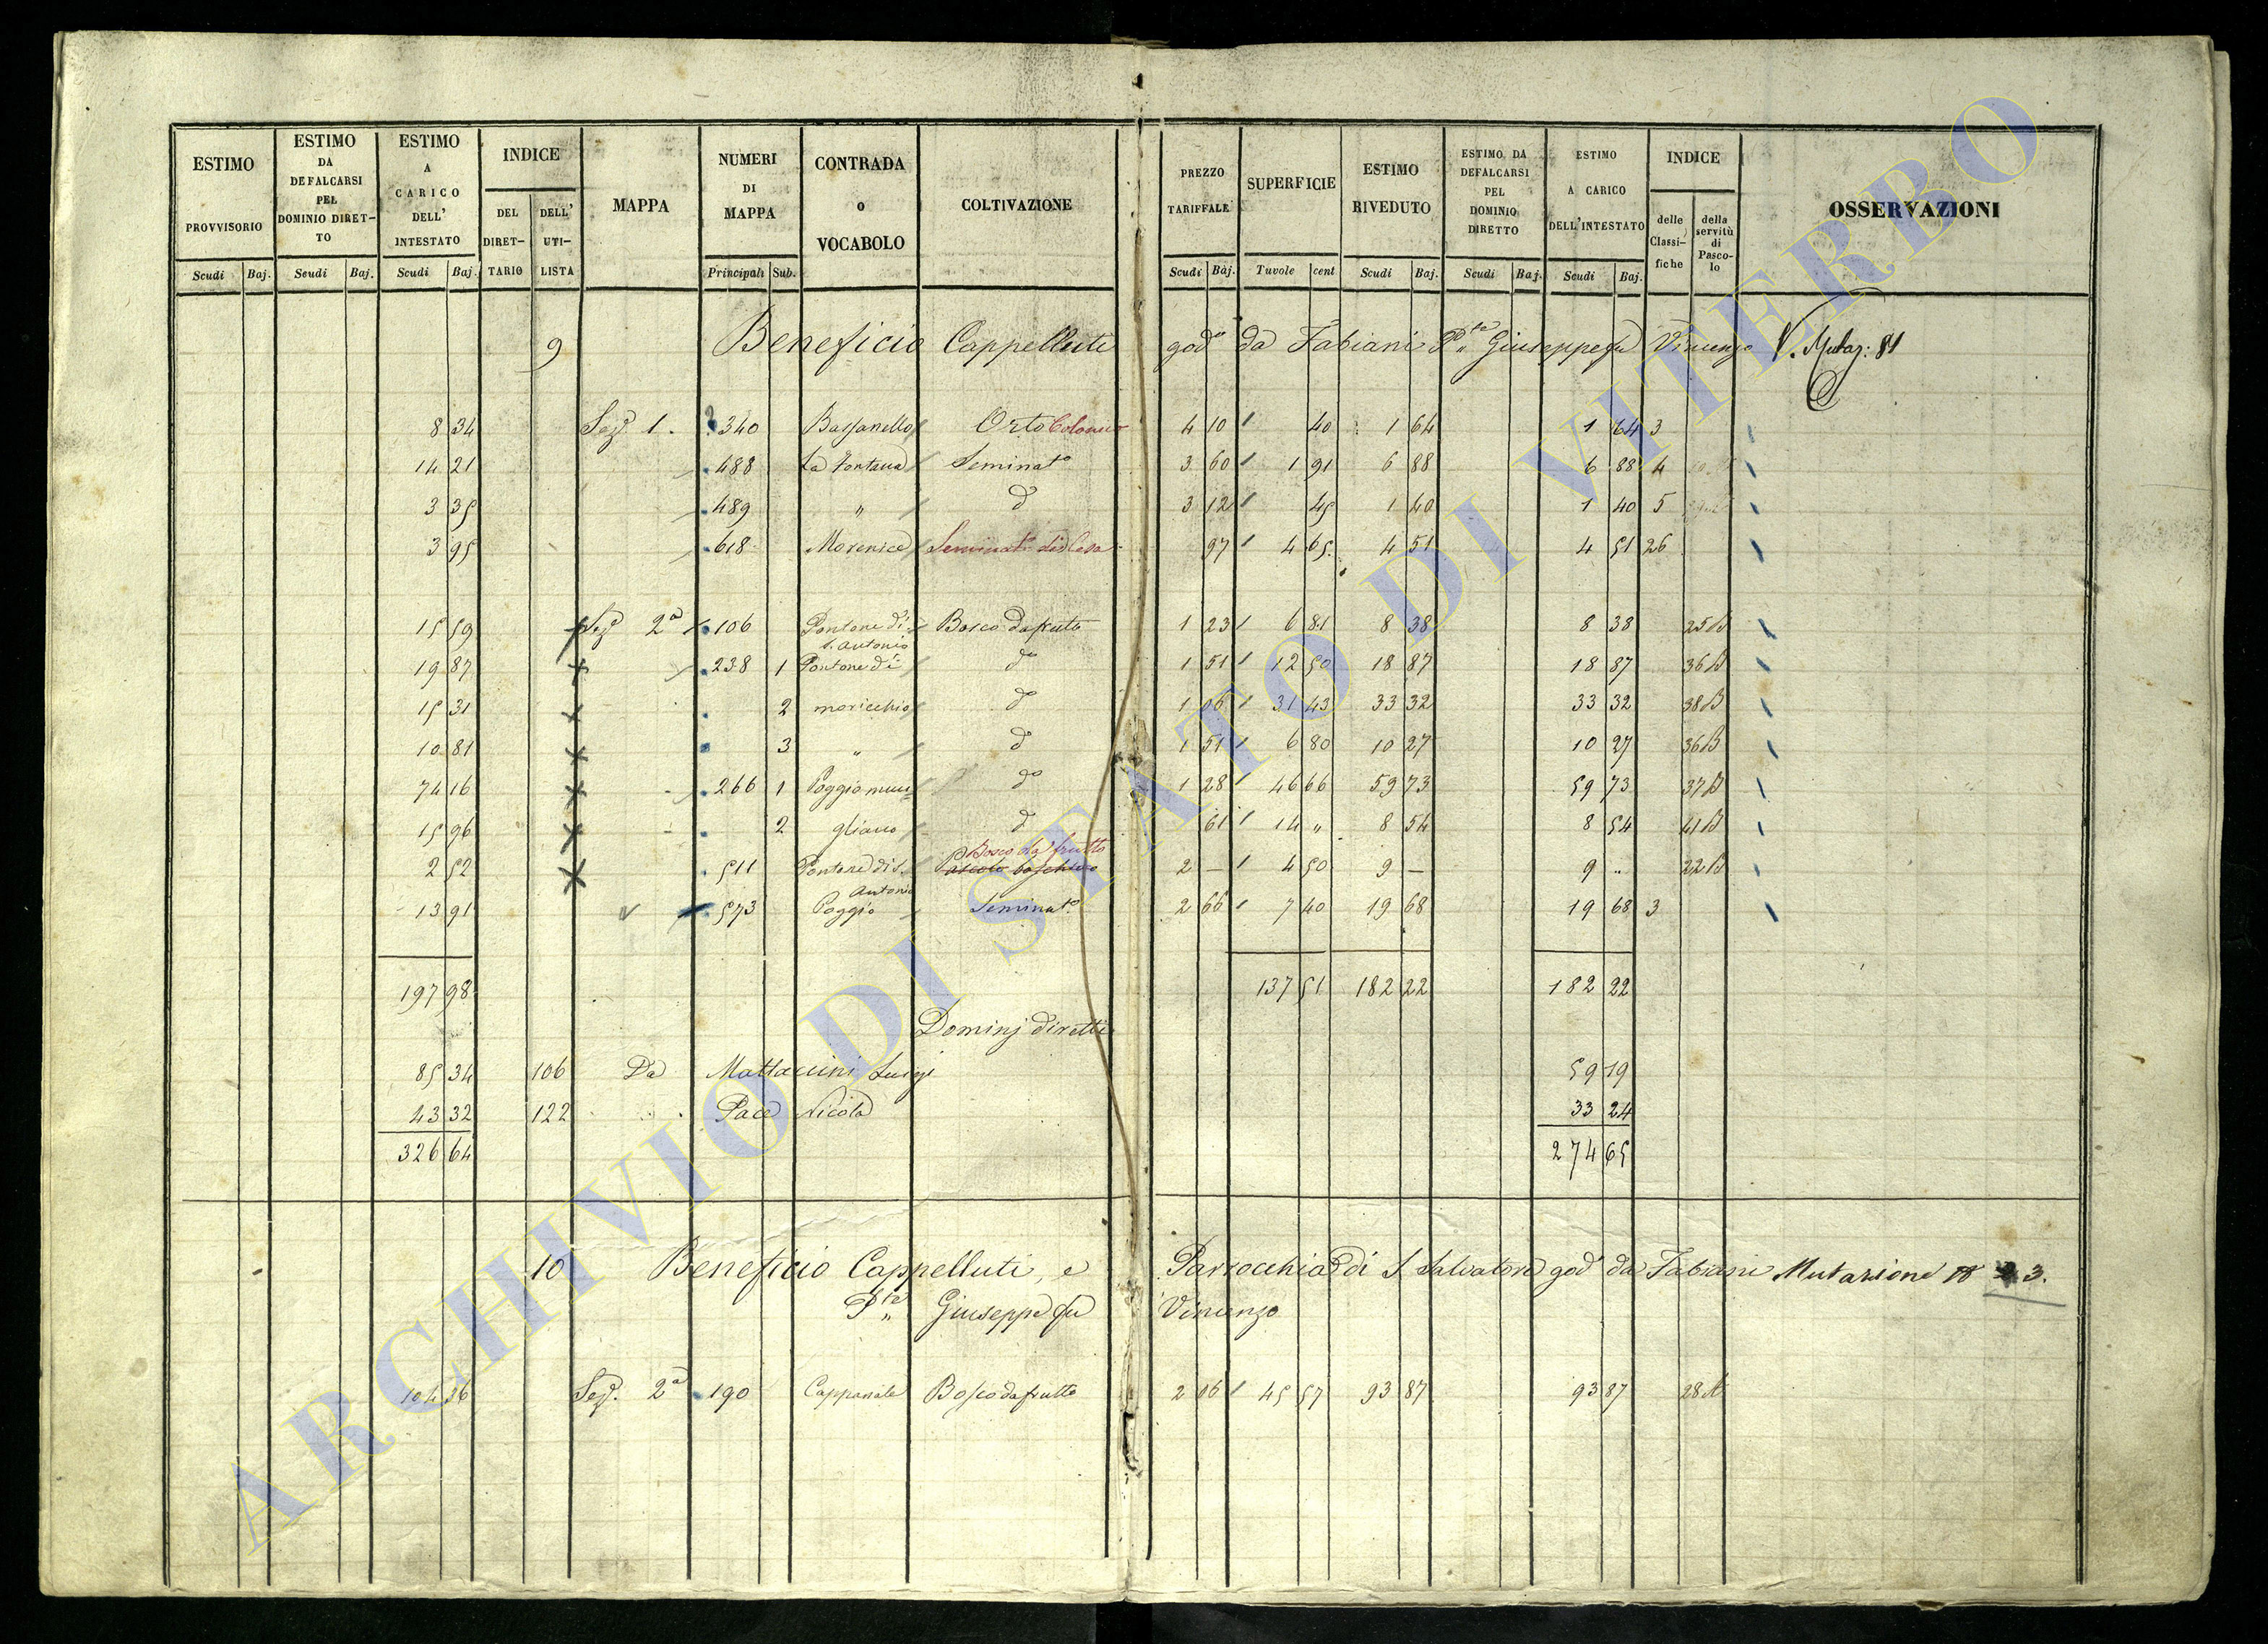 ESTIMO PROVVISORIO | ESTIMO DA DEFALCARSI PEL DOMINIO DIRET-TO | ESTIMO A CARICO DELL' INTESTATO | INDICE DEL DIRET-TARIO | DELL' UTI-LISTA | MAPPA | NUMERI DI MAPPA | CONTRADA O VOCABOLO | COLTIVAZIONE | PREZZO TARIFFALE | SUPERFICIE | ESTIMO RIVEDUTO | ESTIMO DA DEFALCARSI PEL DOMINIO DIRETTO | ESTIMO A CARICO DELL'INTESTATO | INDICE delle Classi-fiche | della servitù di Pasco-lo | OSSERVAZIONI
Scudi Baj. | Scudi Baj. | Scudi Baj. | Principali Sub. | Scudi Baj. | Tavole cent | Scudi Baj. | Scudi Baj. | Scudi Baj.
9 Beneficio Cappelluti god° da Fabiani P.te Giuseppe fu Vincenzo V. Mutaz: 81
8 34 Sez. 1. 340 Bassanello Orto Colonico 4 10 40 1 64 1 64 3
14 21 488 La Fontana Seminat° 3 60 1 91 6 88 6 88 4
3 35 489 " d° 3 12 45 1 40 1 40 5
3 95 618 Morenice 97 4 65 4 51 4 51 26
15 59 Sez. 2ª 106 Pontone di S. Antonio Bosco da frutto 1 23 6 81 8 38 8 38 25B
19 87 238 1 Pontone di d° 1 51 12 50 18 87 18 87 36B
15 31 2 moricchio d° 1 06 31 43 33 32 33 32 38B
10 81 3 " d° 1 51 6 80 10 27 10 27 36B
74 16 266 1 Poggio muci= d° 1 28 46 66 59 73 59 73 37B
15 96 2 gliano d° 61 14 " 8 54 8 54 41B
Bosco da frutto
2 52 511 Pontone di S. Antonio Pascolo boschivo 2 — 4 50 9 — 9 " 22B
13 91 573 Poggio Seminat° 2 66 7 40 19 68 19 68 3
197 98 137 51 182 22 182 22
Dominj diretti
85 34 106 Da Mattaccini Luigi 59 19
43 32 122 Pace Nicola 33 24
326 64 274 65
10 Beneficio Cappelluti, e Parrocchia di S Salvatore god° da Fabiani Mutazione 3.
P.te Giuseppe fu Vincenzo
104 36 Sez. 2ª 190 Cappanale Bosco da frutto 2 06 45 57 93 87 93 87 28A
ARCHIVIO DI STATO DI VITERBO